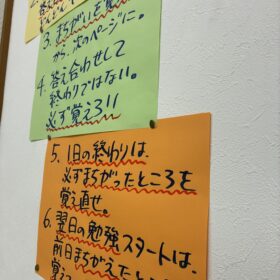 3. まちがいを覚
から、次のページに。
4. 答え合わせして
終わりではない。
必ず覚えろ!!
5. 1日の終わりは、
必ずまちがったところを
覚え直せ。
6. 翌日の勉強スタートは、
前日まちがえたところ